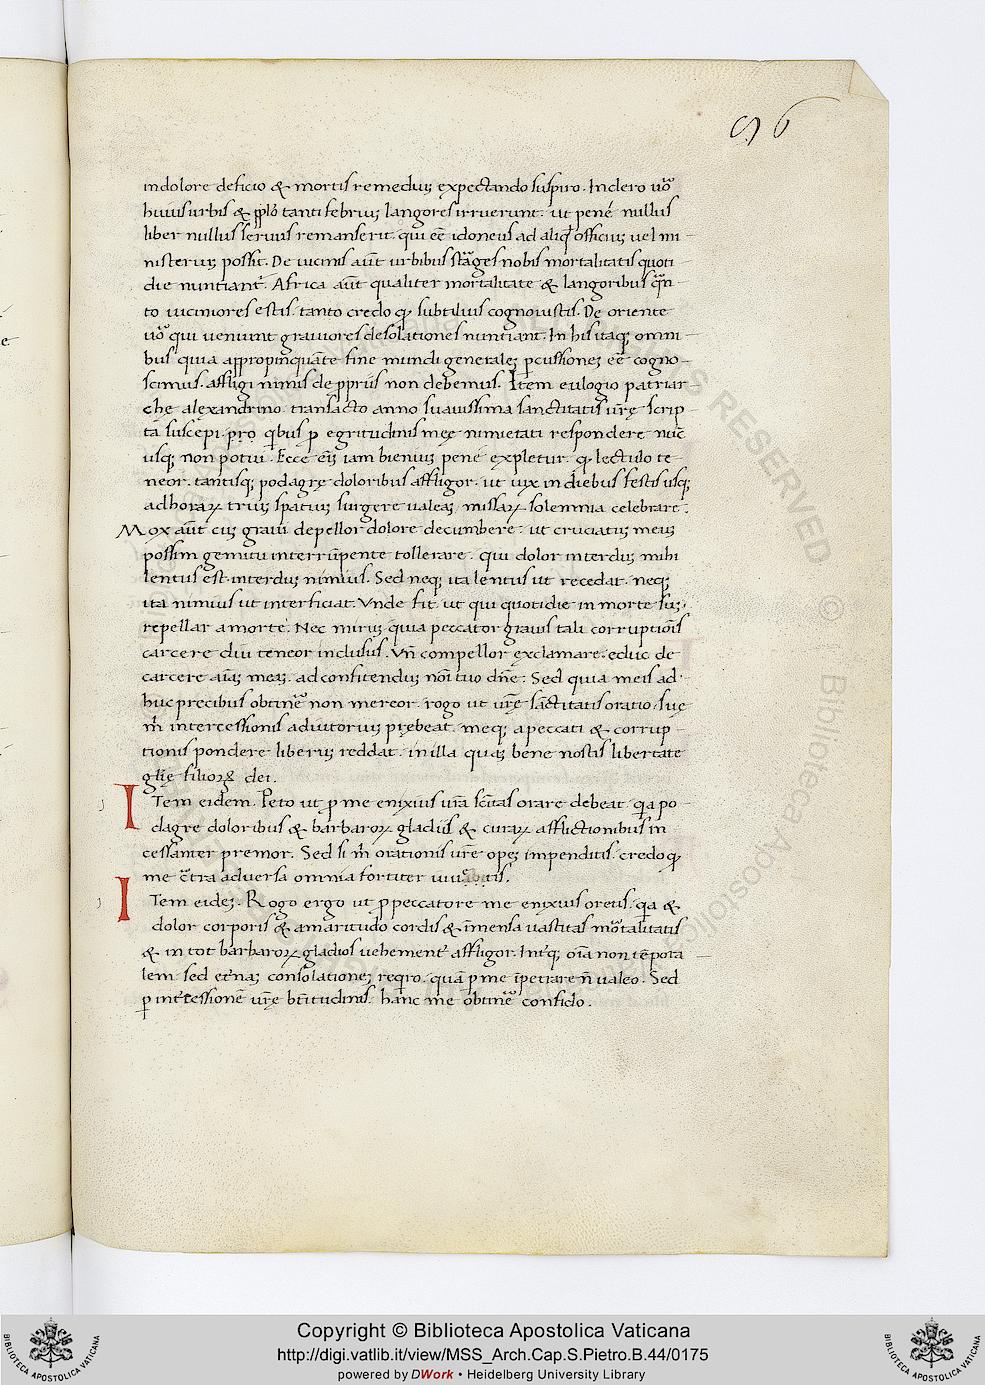 96
in dolore deficio & mortis remediuʒ expectando suspiro. In clero uo᷒
huius urbis & pplo᷒ tanti febriuʒ langores irruerunt. ut pené nullus
liber nullus seruus remanserit. qui eē idoneus ad aliqd᷒ officiuʒ uel mi-
nisteriuʒ possit. De uicinis aūt urbibus strages nobis mortalitatis quoti-
die nuntiant᷒. Africa aūt qualiter mortalitate & langoribus
to uiciniores estis. tanto credo qꝫ subtilius cognouistis. De oriente
uo᷒ qui ueniunt grauiores desolationes nuntiant. In his itaqꝫ omni-
bus quia appropinquāte fine mundi generaleʒ pcussioneʒ eē cogno-
scimus. affligi nimis de ppriis non debemus. Item eulogio patriar-
che alexandrino. transacto anno suauissima sanctitatis urę̄ scrip-
ta suscepi. pro qbus p egritudinis meę nimietati respondere nūc
usqꝫ non potui. Ecce eiʒ iam bieniuʒ pené expletur. qꝫ lectulo te-
neor. tantisqꝫ podagrę doloribus affligor. ut uix in diebus festis usqꝫ
ad horaꝝ triuʒ spatiuʒ surgere ualeaʒ missaꝝ solemnia celebrare.
Mox aūt cuʒ graui depellor dolore decumbere. ut cruciatuʒ meuʒ
possim gemitu interrūpente tollerare. qui dolor interduʒ mihi
lentus est. interduʒ nimius. Sed neqꝫ ita lentus ut recedat. neqꝫ
ita nimius ut interficiat. Vnde fit ut qui quotidie in morte suʒ.
repellar a morte. Nec miruʒ quia peccator grauis talis corruptiōis
carcere diu teneor inclusus. Vn̄ compellor exclamare. educ de
carcere aiāʒ meaʒ. ad confitenduʒ noī tuo dn̄e. Sed quia meis ad-
huc precibus obtine᷒ non mereor. rogo ut urę̄ sāctitatis oratio. suę
m̄ intercessionis adiutoriuʒ prębeat. meqꝫ a peccati & corrup-
tionis pondere liberuʒ reddat. in illa quaʒ bene nostis libertate
gl̄ię filioꝝ dei.
ITem eidem. Peto ut p me enixius ur̄a scītas orare debeat. qa po-
dagre doloribus & barbaroꝝ gladiis & curaꝝ afflictionibus in
cessanter premor. Sed si m̄ orationis ur̄e opeʒ impenditis. credo qꝫ
me c̄tra aduersa omnia fortiter
ITem eideʒ. Rogo ergo ut p peccatore me enixius oretis. qa &
dolor corporis & amaritudo cordis & īmensa uastitas mo᷒talitatis
& in tot barbaroꝝ gladios uehement᷒ affligor. Int᷒ qꝫ oīa non tēpora-
lem. sed et᷒naʒ consolationeʒ reqro. quā p me īpetrare n̄ ualeo. Sed
p int᷒cessionē urę̄ bt̄itudinis. hanc me obtine᷒ confido.
Copyright © Biblioteca Apostolica Vaticana
http://digi.vatlib.it/view/MSS_Arch.Cap.S.Pietro.B.44/0175
powered by DWork • Heidelberg University Library